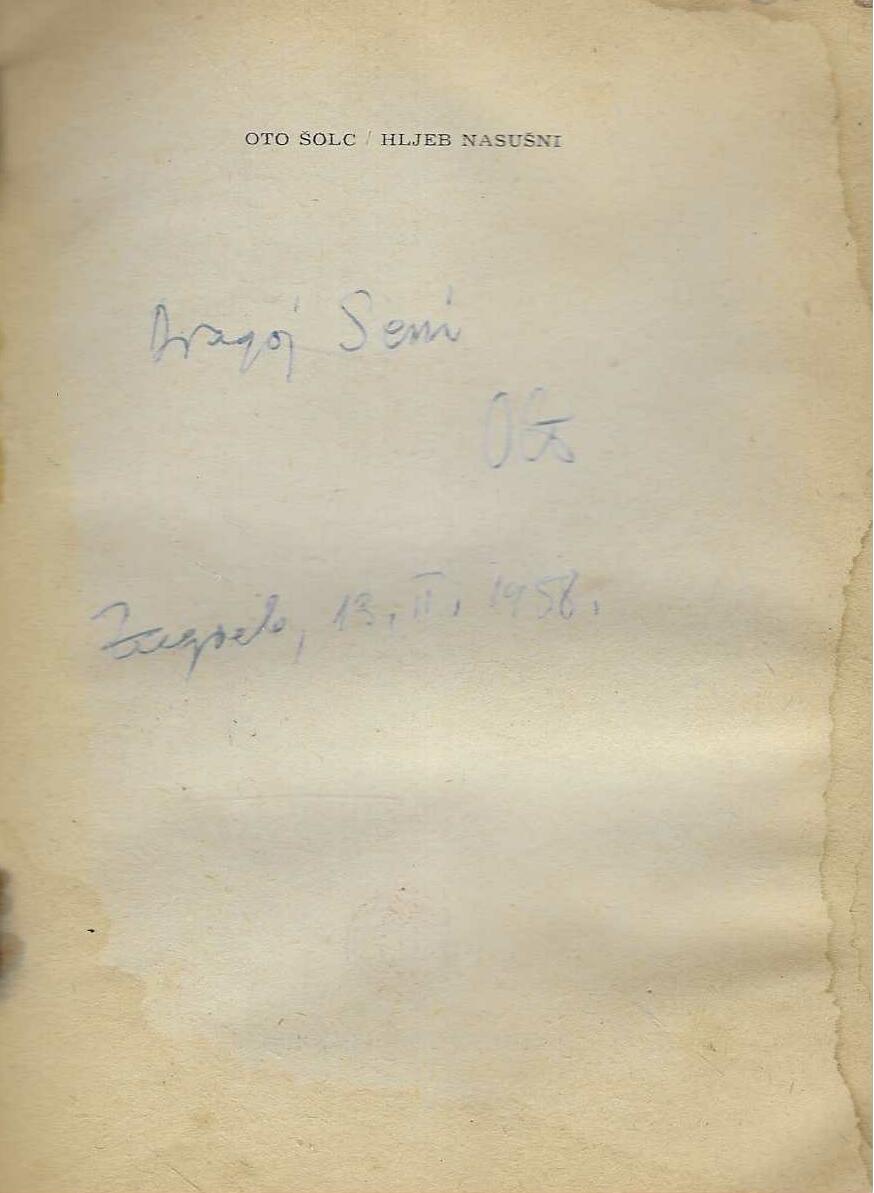 OTO ŠOLC / HLJEB NASUŠNI
Dragoj Seni
Oto
Zagreb, 13. II. 1958.